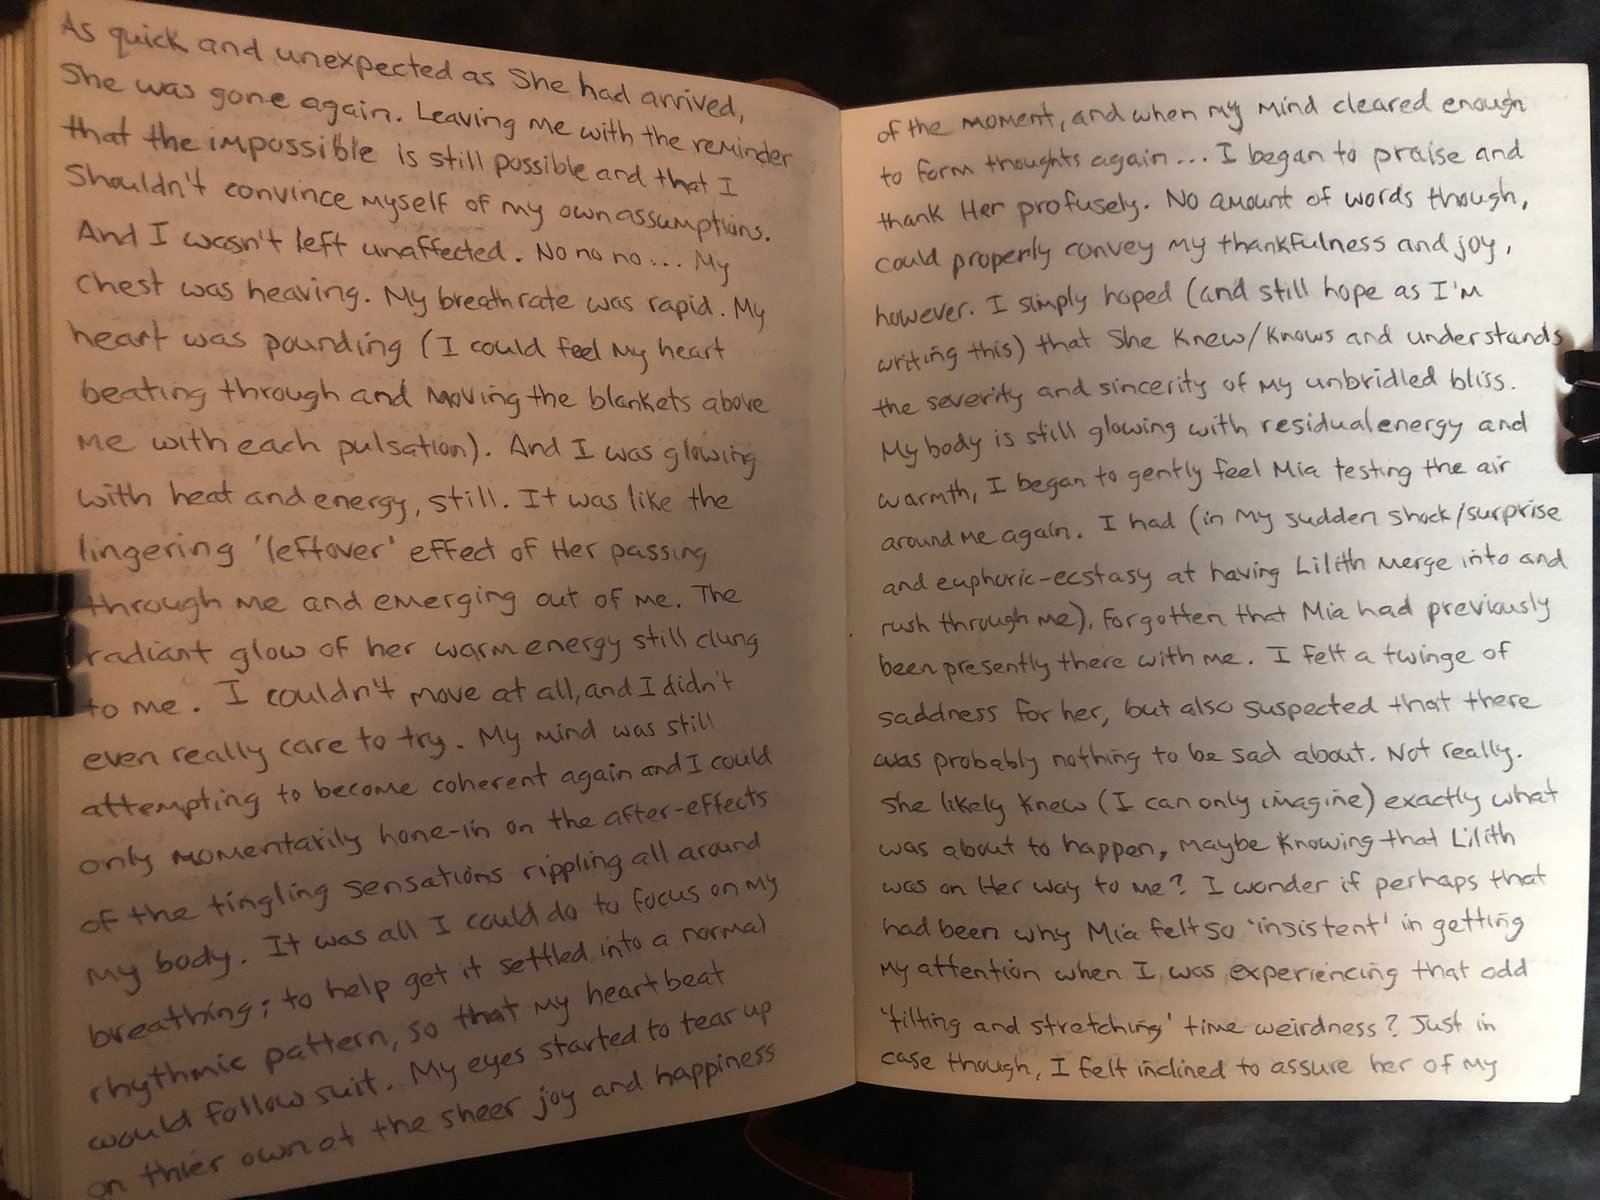 As quick and unexpected as She had arrived,
She was gone again. Leaving me with the reminder
that the impossible is still possible and that I
Shouldn't convince myself of my own assumptions.
And I wasn't left unaffected. No no no... My
chest was heaving. My breath rate was rapid. My
heart was pounding (I could feel my heart
beating through and moving the blankets above
me with each pulsation). And I was glowing
with heat and energy, still. It was like the
lingering 'leftover' effect of Her passing
through me and emerging out of me. The
radiant glow of her warm energy still clung
to me. I couldn't move at all, and I didn't
even really care to try. My mind was still
attempting to become coherent again and I could
only momentarily hone-in on the after-effects
of the tingling sensations rippling all around
my body. It was all I could do to focus on my
breathing; to help get it settled into a normal
rhythmic pattern, so that my heart beat
would follow suit. My eyes started to tear up
on thier own at the sheer joy and happiness
of the moment, and when my mind cleared enough
to form thoughts again... I began to praise and
thank Her profusely. No amount of words though,
could properly convey my thankfulness and joy,
however. I simply hoped (and still hope as I'm
writing this) that She knew/knows and understands
the severity and sincerity of my unbridled bliss.
My body is still glowing with residual energy and
warmth, I began to gently feel Mia testing the air
around me again. I had (in my sudden shock/surprise
and euphoric-ecstasy at having Lilith merge into and
rush through me), forgotten that Mia had previously
been presently there with me. I felt a twinge of
saddness for her, but also suspected that there
was probably nothing to be sad about. Not really.
She likely knew (I can only imagine) exactly what
was about to happen, maybe knowing that Lilith
was on Her way to me? I wonder if perhaps that
had been why Mia felt so 'insistent' in getting
my attention when I was experiencing that odd
'tilting and stretching' time weirdness? Just in
case though, I felt inclined to assure her of my